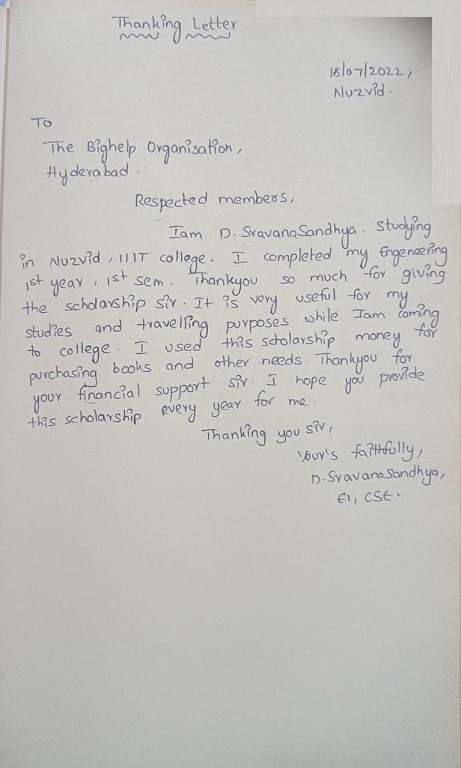 Thanking Letter
18/07/2022,
Nuzvid.
To
The Bighelp Organisation,
Hyderabad.
Respected members,
Iam D. SravanaSandhya. Studying
in Nuzvid, IIIT college. I completed my Engeneering
1st year, 1st sem. Thankyou so much for giving
the scholarship sir. It is very useful for my
studies and travelling purposes while Iam coming
to college. I used this scholarship money for
purchasing books and other needs. Thankyou for
your financial support sir. I hope you provide
this scholarship every year for me.
Thanking you sir,
Your's faithfully,
D. SravanaSandhya,
E1, CSE.